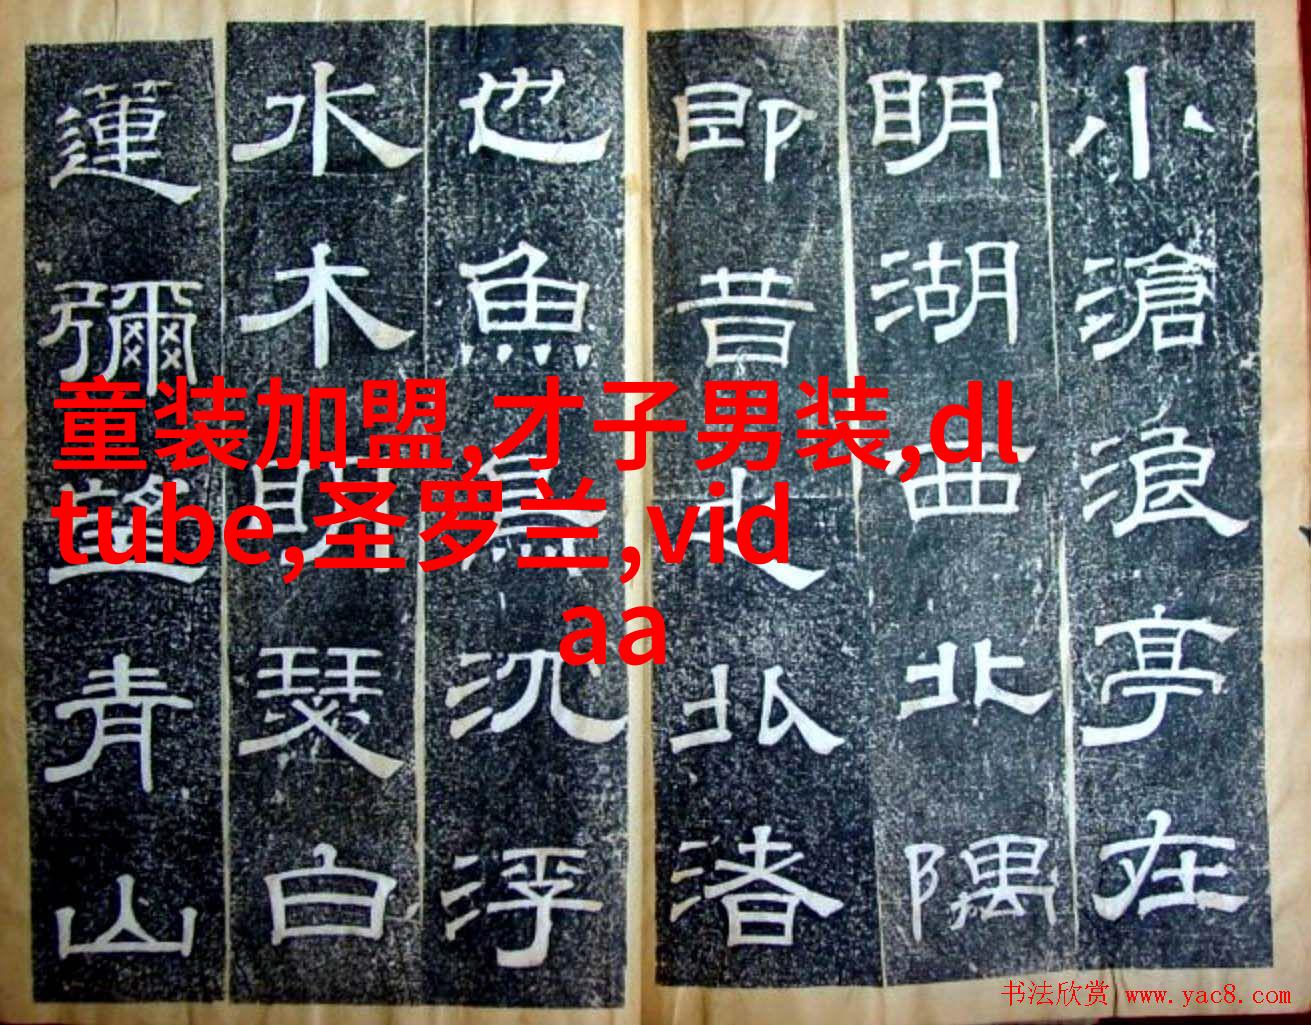 小滄浪亭在
明湖西北隅
即昔之北渚
也魚鳥沉浮
水木明瑟白
蓮彌望青山
童装加盟,才子男装,dl
tube,圣罗兰,vid
aa
书法欣赏 www.yac8.com